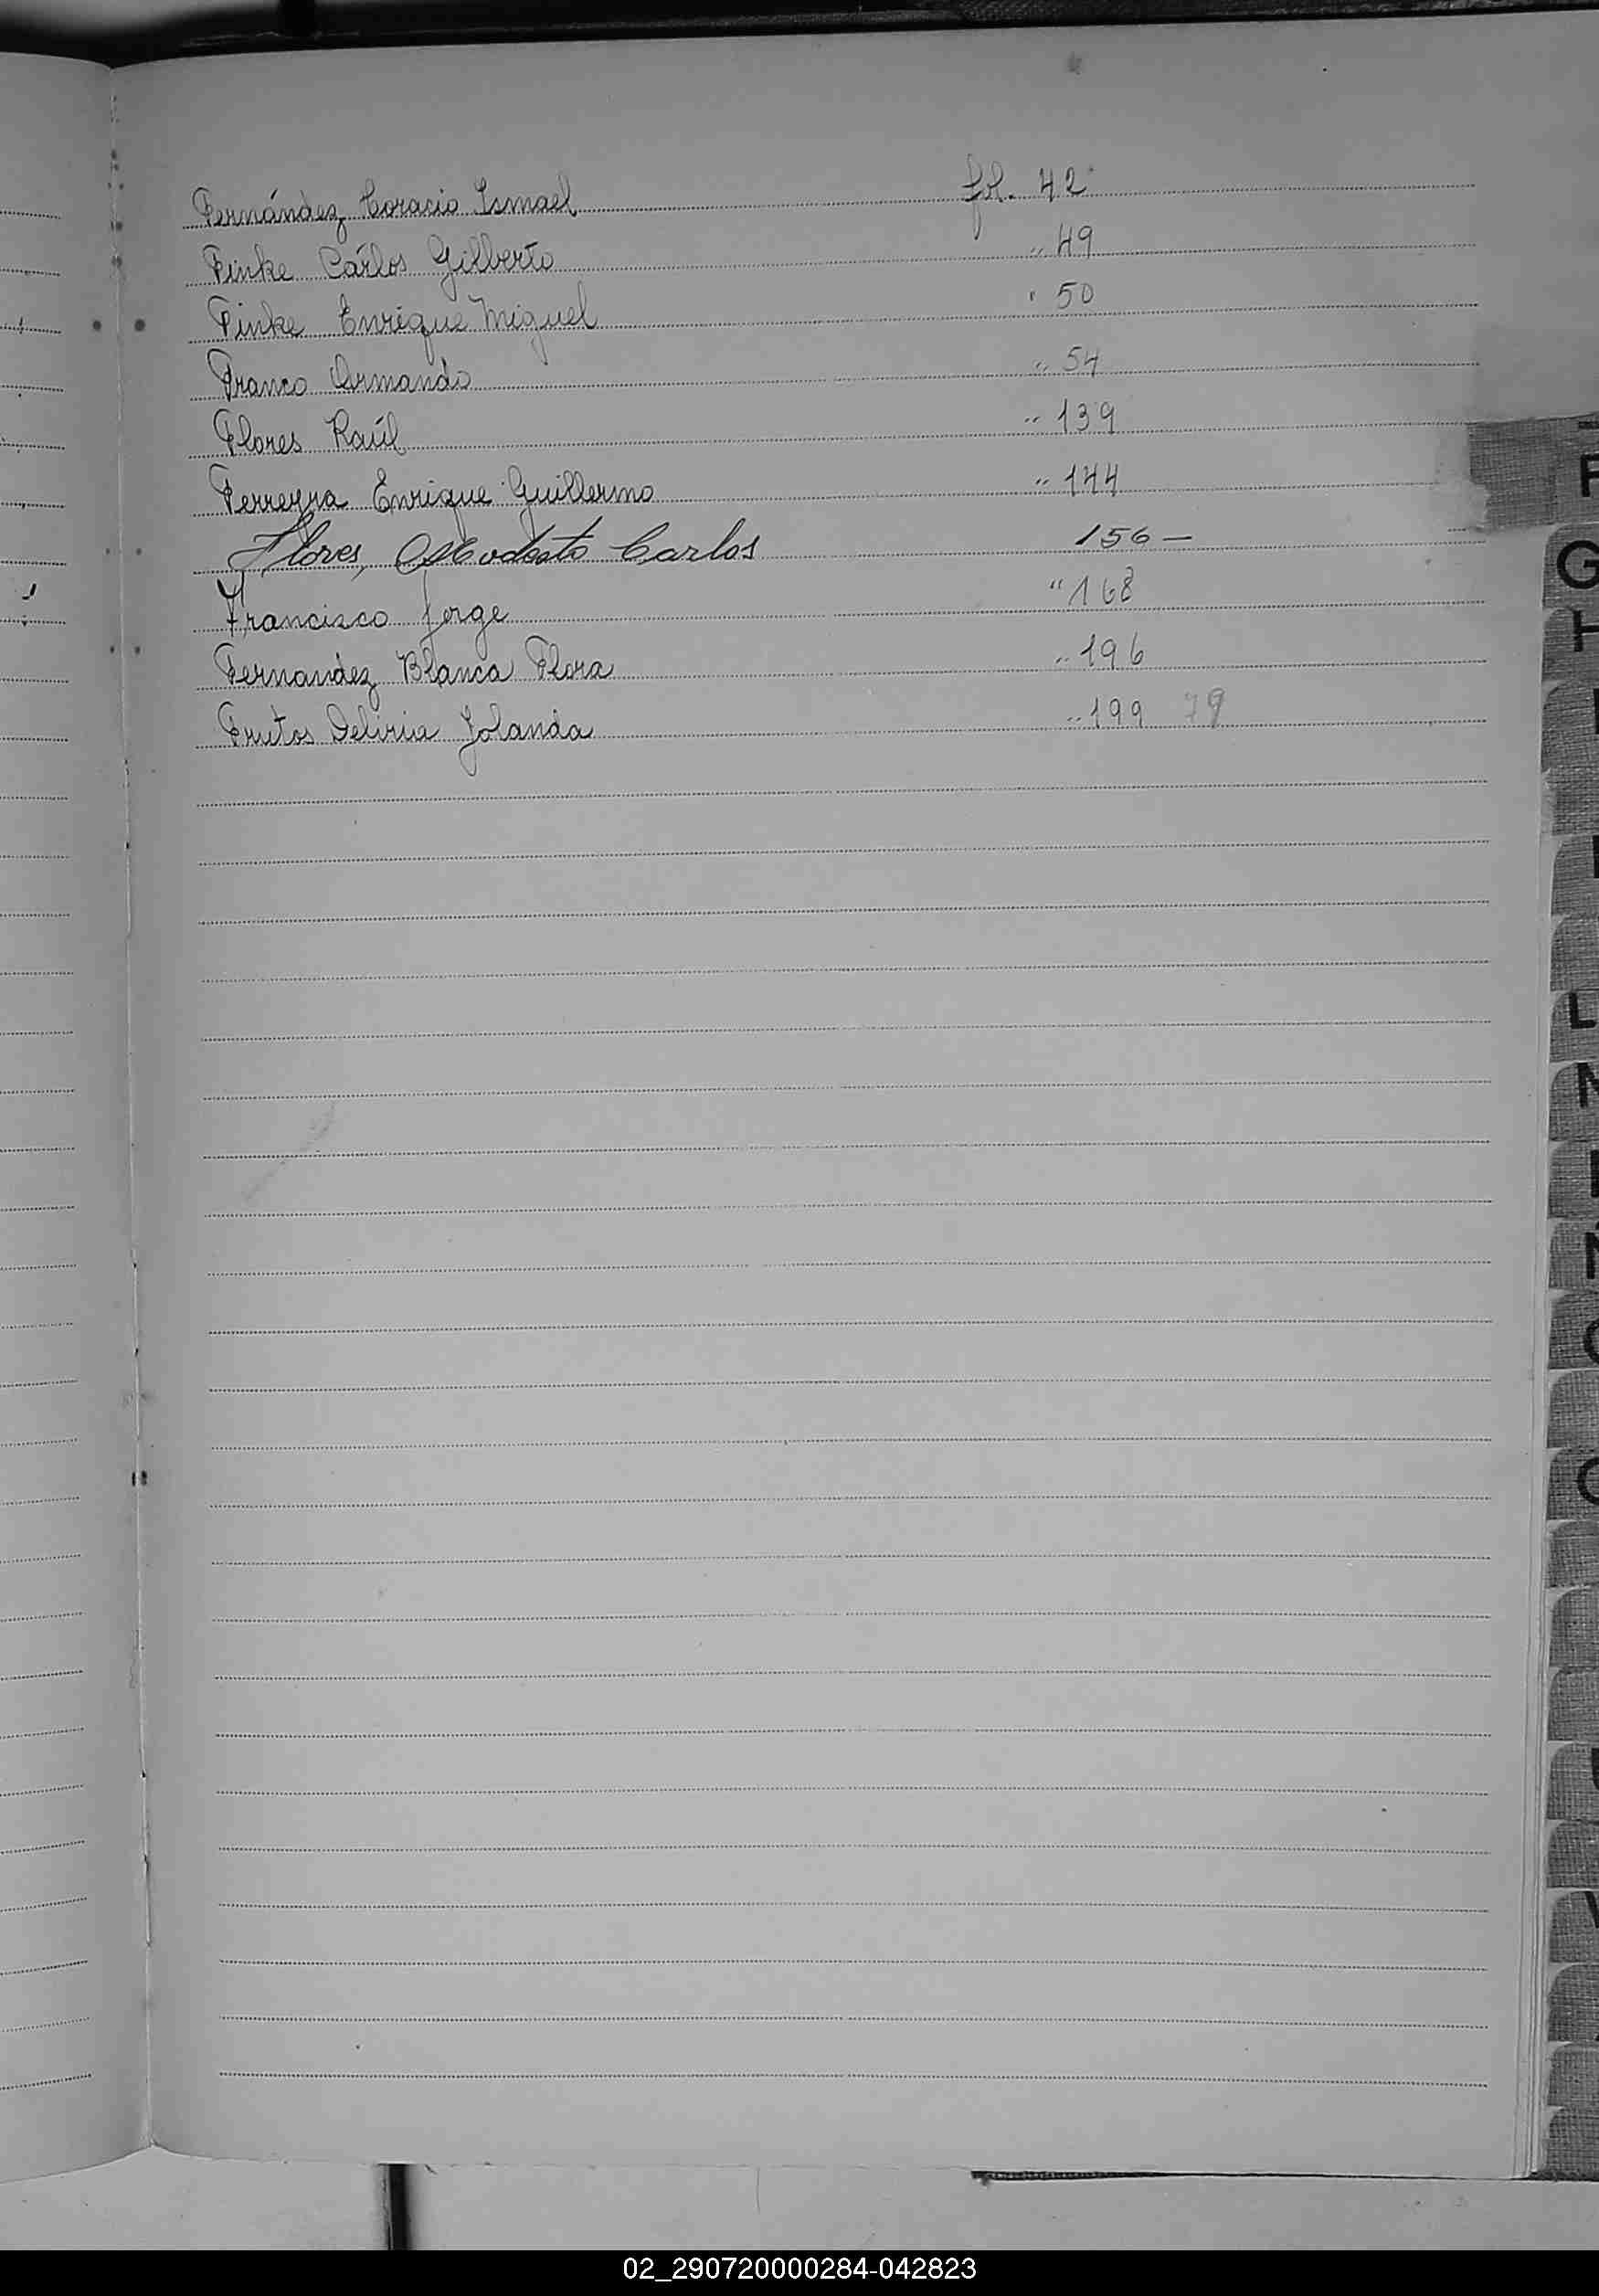 Fernández Horacio Ismael fol. 42
Finke Carlos Gilberto " 49
Finke Enrique Miguel " 50
Franco Armando " 54
Flores Raúl " 139
Ferreyra Enrique Guillermo " 144
Flores, Modesto Carlos 156 —
Francisco Jorge " 168
Fernandez Blanca Flora " 196
Frutos Deliria Yolanda " 199 79
F
G
L
02_290720000284-042823